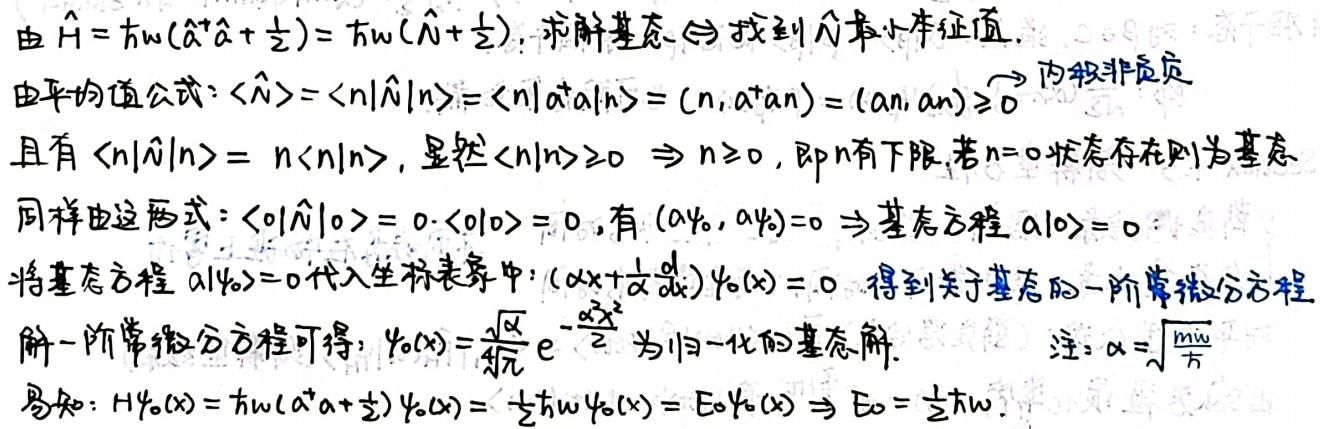 由 Ĥ = ħω(â⁺â + 1/2) = ħω(N̂ + 1/2), 求解基态 ⇔ 找到 N̂ 最小本征值.
→ 内积非负定
由平均值公式: <N̂> = <n|N̂|n> = <n|a⁺a|n> = (n, a⁺an) = (an, an) ≥ 0
且有 <n|N̂|n> = n<n|n>, 显然<n|n>≥0 ⇒ n≥0, 即n有下限.若n=0状态存在则为基态
同样由这两式: <0|N̂|0> = 0·<0|0> = 0, 有 (aψ₀, aψ₀)=0 ⇒ 基态方程 a|0> = 0
将基态方程 a|ψ₀>=0代入坐标表象中: (αx + 1/α d/dx) ψ₀(x) = 0 得到关于基态的一阶常微分方程
解一阶常微分方程可得: ψ₀(x) = √α/∜π e^(-α²x²/2) 为归一化的基态解. 注: α = √(mω/ħ)
易知: Hψ₀(x) = ħω(a⁺a + 1/2) ψ₀(x) = 1/2 ħω ψ₀(x) = E₀ψ₀(x) ⇒ E₀ = 1/2 ħω.